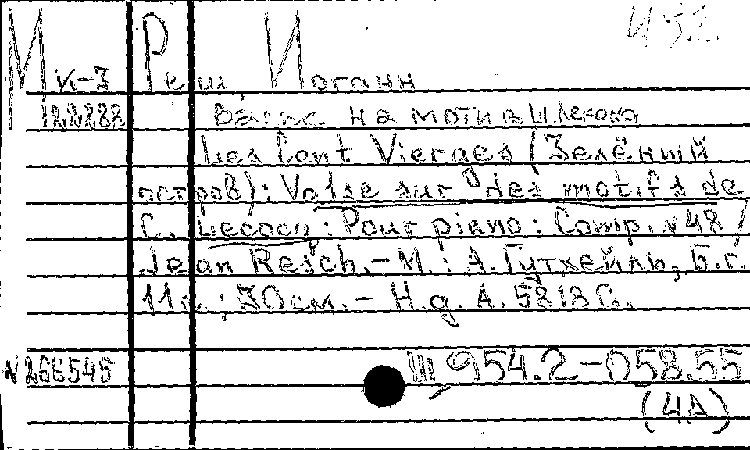 Мк-3 Реш, Иоганн
122288 Вальс на мотивы Лекока
Les Cent Vierges (Зелёный
остров): Valse sur des motifs de
C. Lecocq: Pour piano: Comp. №48 /
Jean Resch.-М.: А.Гутхейль, Б.г.
11с.; 30см.- Н.д. А. 5818 G.
№266545 Щ 954.2-058.55
(4А)